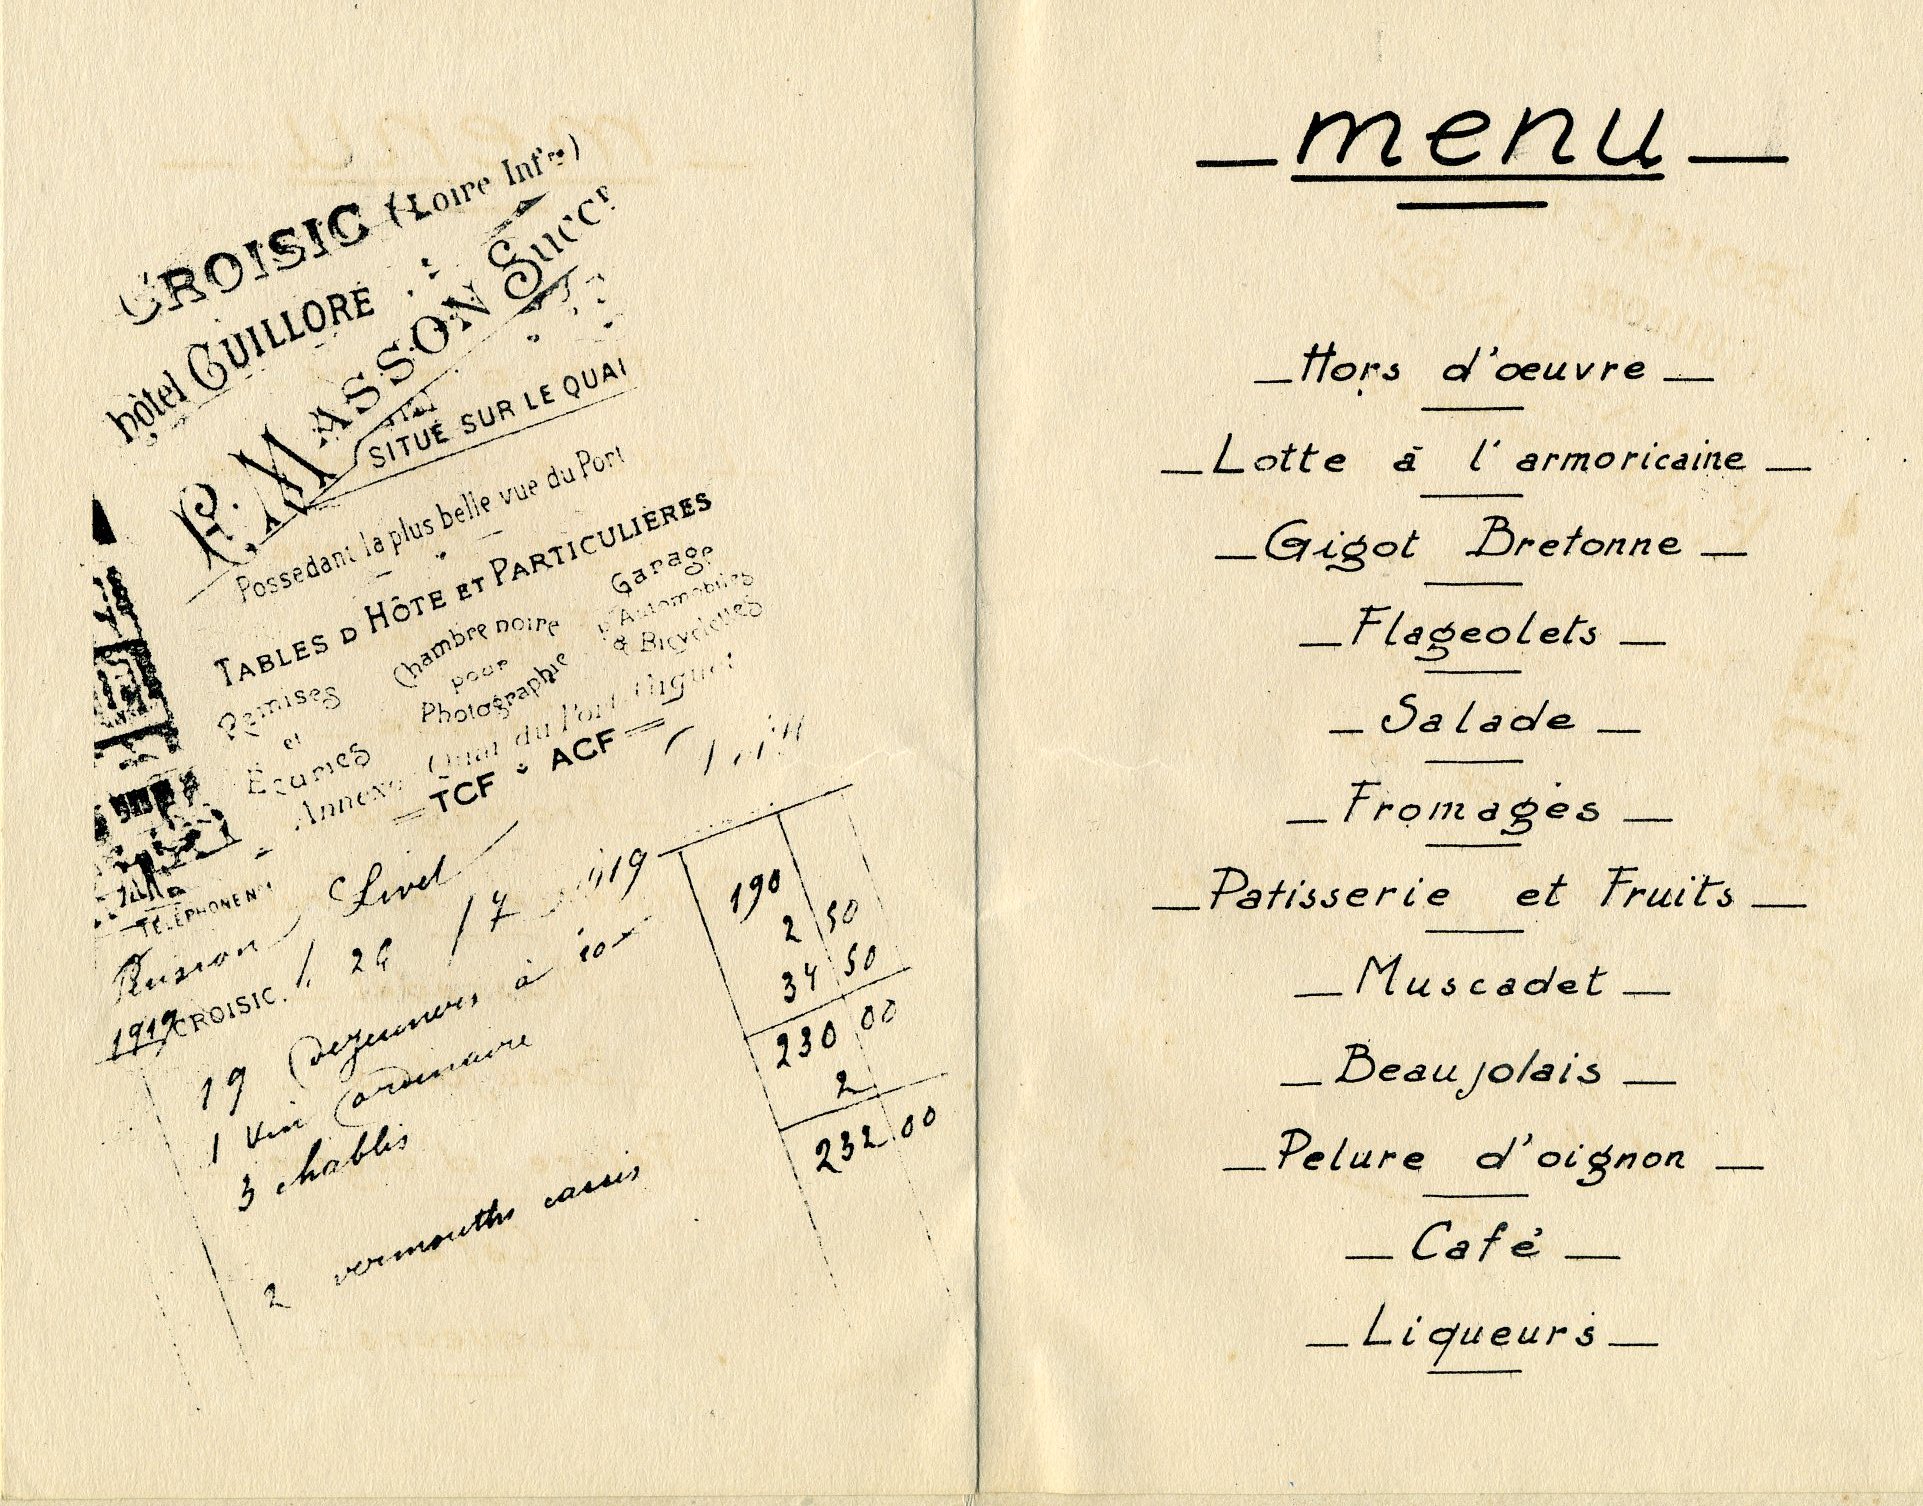 CROISIC (Loire Infre)
hôtel GUILLORE
MASSON Succr
SITUÉ SUR LE QUAI
Possedant la plus belle vue du Port
TABLES D HÔTE ET PARTICULIERES
Remises
et
Ecuries
Chambre noire
pour
Photographie
Garage
d'Automobiles
& Bicyclettes
Annexe Quai du Port
TCF ACF
TELEPHONE No
CROISIC, 26 / 7 1919
1919
19 Dejeuners à 10 190
1 Vin ordinaire 2 50
3 chablis 34 50
230 00
2 vermouths cassis 2
232 00
menu
Hors d'œuvre
Lotte à l'armoricaine
Gigot Bretonne
Flageolets
Salade
Fromages
Patisserie et Fruits
Muscadet
Beaujolais
Pelure d'oignon
Café
Liqueurs